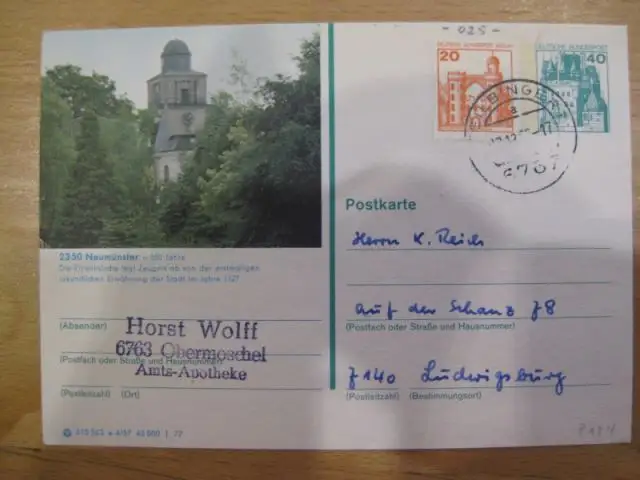 - 025 -
DEUTSCHE BUNDESPOST BERLIN
20
DEUTSCHE BUNDESPOST
40
6767
2350 Neumünster – 850 Jahre
Die Vicelinkirche legt Zeugnis ab von der erstmaligen
urkundlichen Erwähnung der Stadt im Jahre 1127
(Absender)
Horst Wolff
6763 Obermoschel
(Postfach oder Straße und Hausnummer)
Amts-Apotheke
(Postleitzahl) (Ort)
Postkarte
Herrn K. Reich
Auf der Schanz 78
(Postfach oder Straße und Hausnummer)
7140 Ludwigsburg
(Postleitzahl) (Bestimmungsort)